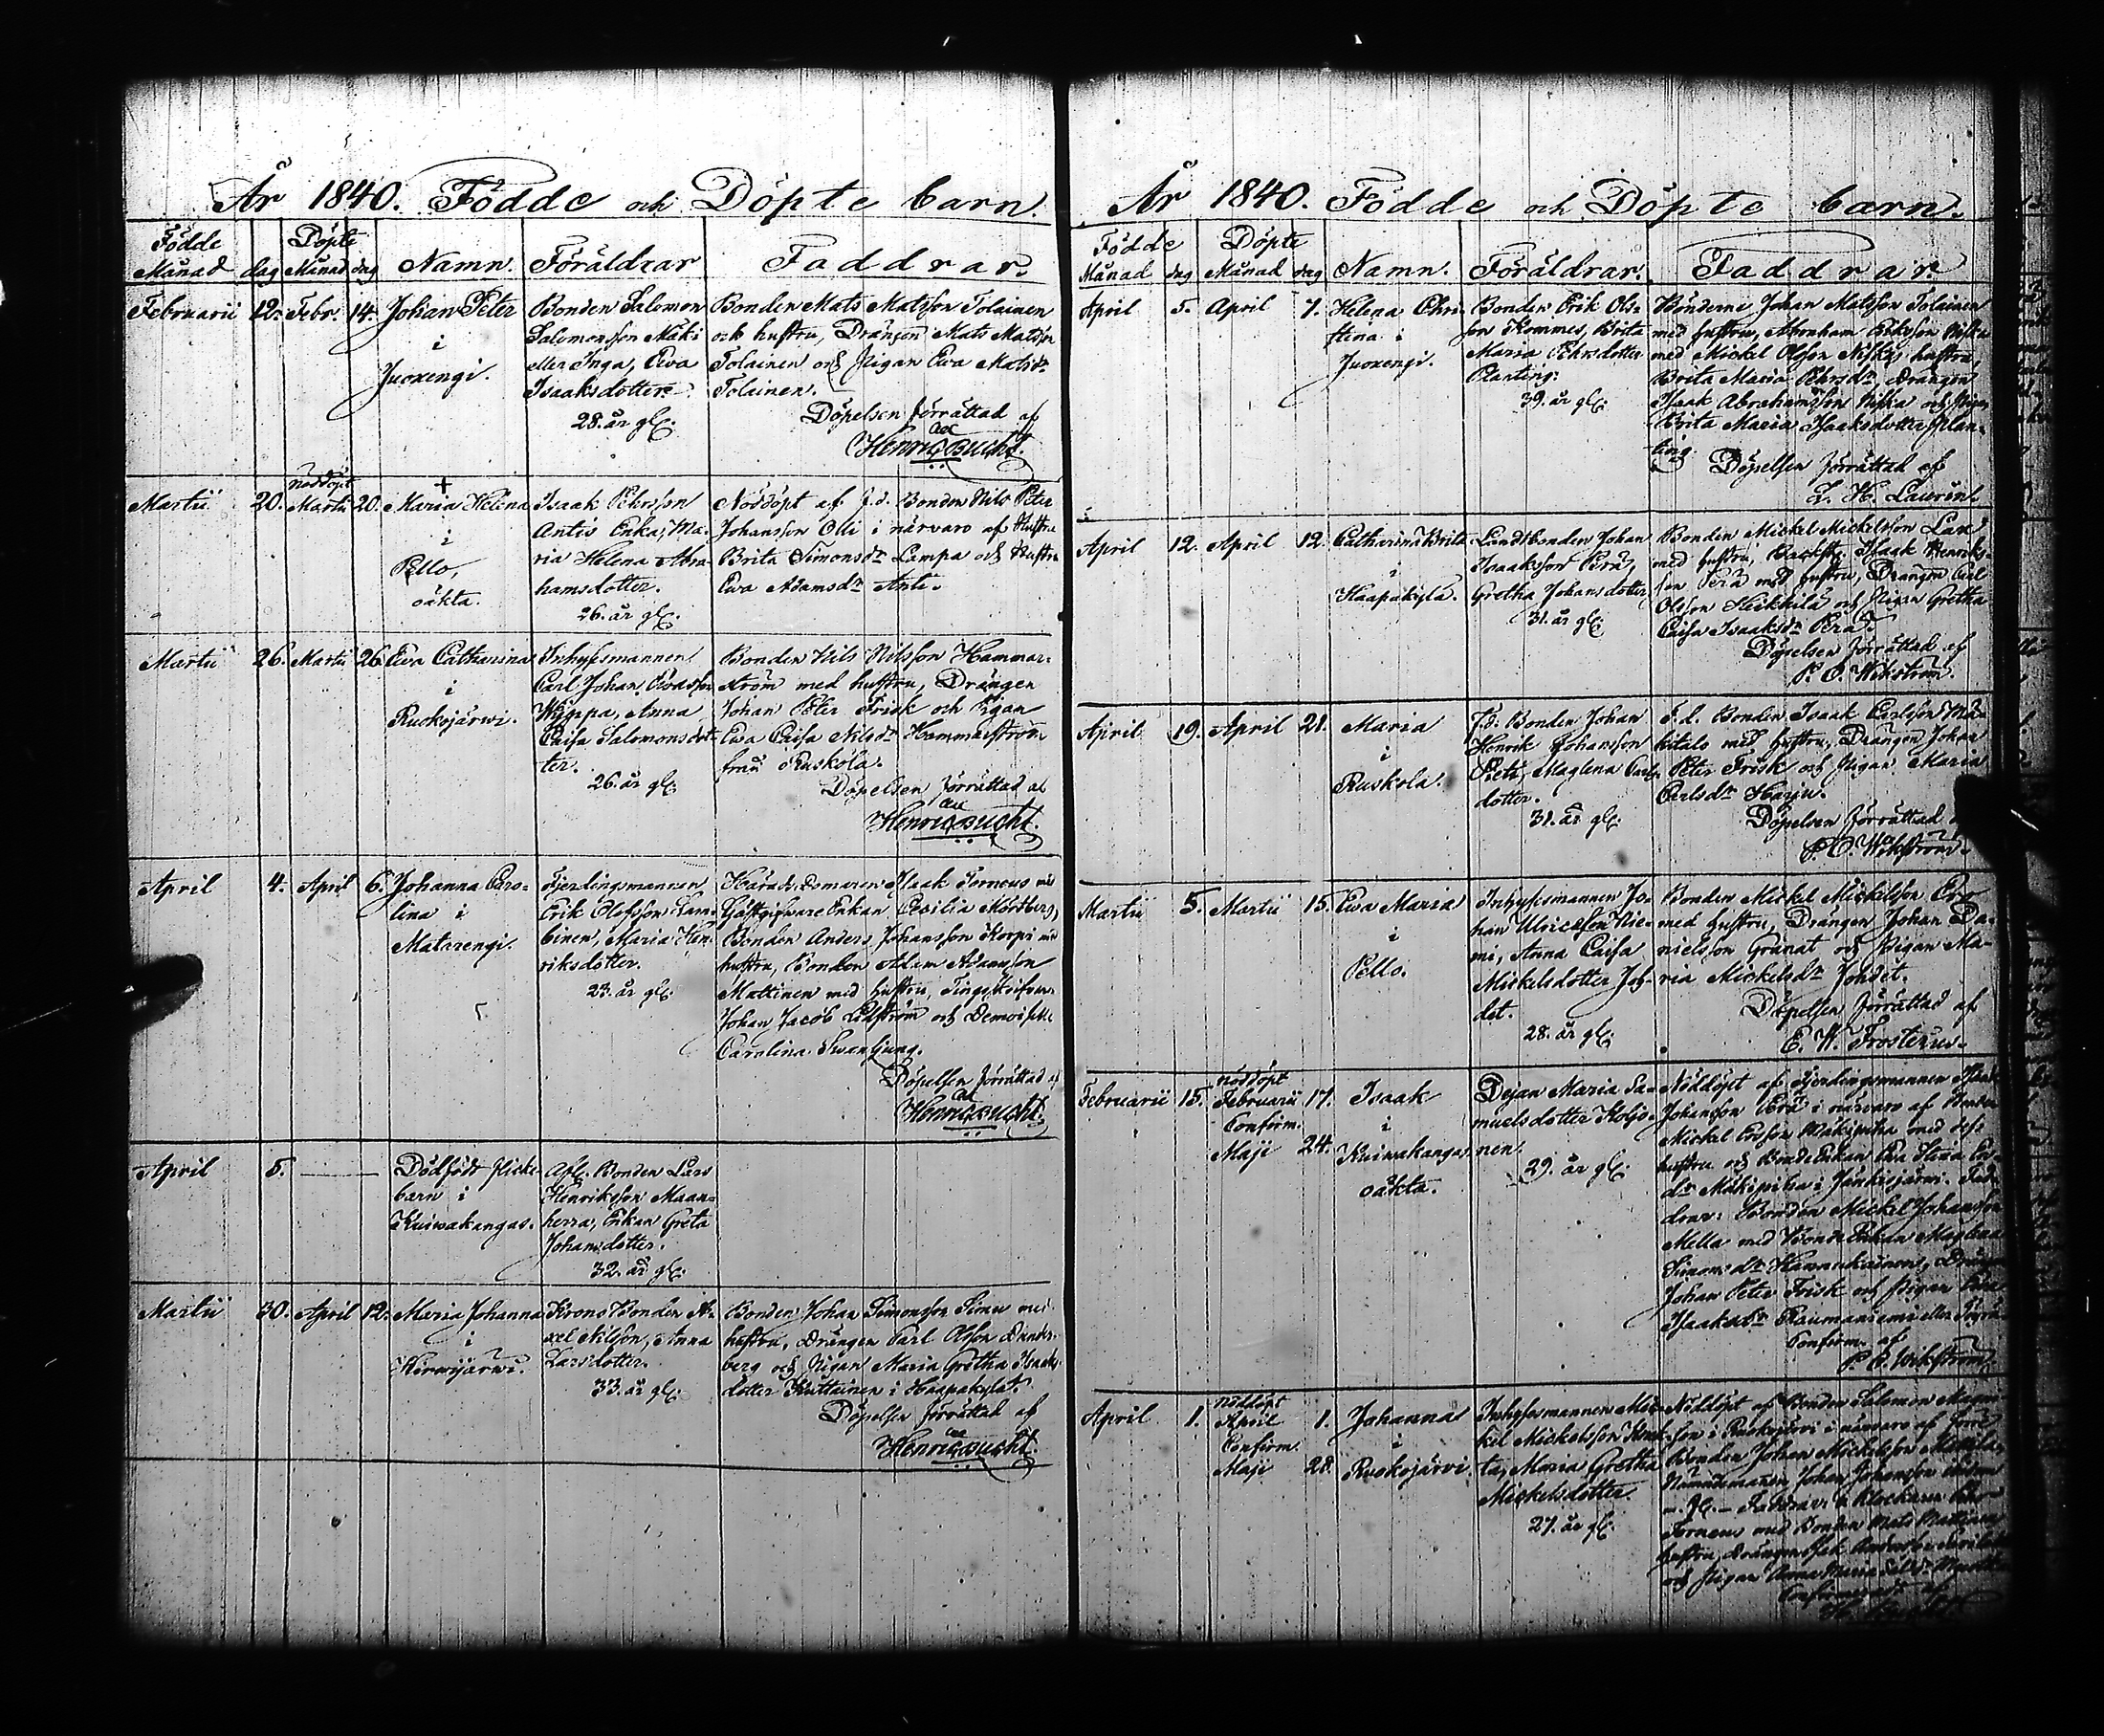 År 1840. Födde och Döpte barn.
Födde Månad dag Döpte Månad dag Namn. Föräldrar Faddrar.
Februarii 12. Febr. 14. Johan Peter
i
Juoxengi.
Bonden Salomon
Salomonsson Mäki
eller Inga, Ewa
Isaaksdotter.
28. år gl.
Bonden Mats Matsson Tolainen
och hustru, Drängen Mats Matsson
Tolainen och Pigan Ewa Matsdr
Tolainen.
Döpelsen förrättad af
Henric Bucht.
Martii 20. nöddöpt Martii 20. Maria Helena
i
Pello,
oäkta.
Isaak Pehrsson
Antis Enka, Ma-
ria Helena Abra-
hamsdotter.
26. år gl.
Nöddöpt af f.d. Bonden Nils Peter
Johansson Olli i närvaro af Hustru
Brita Simonsdr Lampa och Hustru
Ewa Adamsdr Anti.
Martii 26. Martii 26. Ewa Catharina
i
Ruskojärwi.
Inhysesmannen
Carl Johan
Wippa, Anna
Caisa Salomonsdot-
ter.
26. år gl.
Bonden Nils Nilsson Hammar-
ström med hustru, Drängen
Johan Peter Frisk och Pigan
Ewa Caisa Nilsdr Hammarström
från Ruskola.
Döpelsen förrättad af
Henric Bucht.
April 4. April 6. Johanna Caro-
lina i
Matarengi.
Fjerdingsmannen
Erik Olofsson Lam-
binen, Maria Hen-
riksdotter.
23. år gl.
Härads Domaren Isaak Torneus med
Gästgifware Enkan Cecilia Mörtberg,
Bonden Anders Johansson Korpi med
hustru, Bonden Adam Adamsson
Mattinen med hustru,
Johan Jacob Lidström och Demoiselle
Carolina Swanljung.
Döpelsen förrättad af
Henric Bucht.
April 5. — Dödfödt flicke
barn i
Kuiwakangas.
Afl. Bonden Lars
Henriksson Maan-
herra, Enkan Greta
Johansdotter.
32. år gl.
Martii 30. April 12. Maria Johanna
i
Hirwijärwi.
Krono Bonden Ax-
xel Nilsson, Anna
Larsdotter.
33. år gl.
Bonden Johan Simonsson Simu med
hustru, Drängen Carl Olsson Dunder-
berg och Pigan Maria Gretha Isaaks-
dotter Kuttainen i Haapakylä.
Döpelsen förrättad af
Henric Bucht.
År 1840. Födde och Döpte barn.
Födde Månad dag Döpte Månad dag Namn. Föräldrar. Faddrar.
April 5. April 7. Helena Chri-
stina i
Juoxengi.
Bonden Erik Ols-
son Kommes, Brita
Maria Pehrsdotter
Planting.
39. år gl.
Bönderne Johan Matsson Tolainen
med hustru, Abraham Niska
med Mickel Olsson Niskas hustru,
Brita Maria Pehrsdr, Drängen
Isaak Abrahamsson Niska och Pigan
Brita Maria Isaaksdotter Plan-
ting.
Döpelsen förrättad af
L. H. Laurin.
April 12. April 12. Catharina Brita
i
Haapakylä.
Landtbonden Johan
Isaaksson Perä,
Gretha Johansdotter
31. år gl.
Bonden Mickel Mickelsson Lax
med hustru, Isaak Henriks-
son Perä med hustru, Drängen Carl
Olsson Heikkilä och Pigan Gretha
Caisa Isaaksdr Perä.
Döpelsen förrättad af
P. O. Wikström.
April 19. April 21. Maria
i
Ruskola.
F.d. Bonden Johan
Henrik Johansson
Pieti, Maglena Carls-
dotter.
31. år gl.
F.d. Bonden Isaak Carlsson Mä-
kitalo med hustru, Drängen Johan
Peter Frisk och Pigan Maria
Carlsdr Harju.
Döpelsen förrättad
P. O. Wikström.
Martii 5. Martii 15. Ewa Maria
i
Pello.
Inhysesmannen Jo-
han Ulricsson Nie-
mi, Anna Caisa
Mickelsdotter Joh-
det.
28. år gl.
Bonden Mickel Mickelsson Ero
med hustru, Drängen Johan Da-
nielsson Granat och Pigan Ma-
ria Mickelsdr Johdet.
Döpelsen förrättad af
E. W. Frosterus.
Februarii 15. nöddöpt Februarii 17. Isaak
Confirm.
Maji 24.
i
Kuiwakangas
oäkta.
Dejan Maria Sa-
muelsdotter Koljo-
nen.
29. år gl.
Nöddöpt af Fjerdingsmannen Isaak
Johansson Perä i närvaro af Bonden
Mickel Ersson Mäkipitkä med dess
hustru och Bonde Enkan
dr Mäkipitkä i Jänkisjärwi. Fad-
drar: Bonden Mickel Johansson
Mella med Bonde Enkan Maglena
Simonsdr Hannukainen, Drängen
Johan Peter Frisk och Pigan
Isaaksdr Raumaniemi eller
Confirm. af
P. O. Wikström.
April 1. nöddöpt April 1. Johanna
Confirm.
Maji 28.
i
Ruskojärvi
Inhysesmannen Mic-
kel Mickelsson
Maria Gretha
Mickelsdotter.
27. år gl.
Nöddöpt af Bonden Salomon
son i Ruskojärvi i närvaro af
Bonden Johan Mickelsson
Nämndemannen Johan Johansson
Faddrar: Klockaren
Torneus med Bonden Mats Mattinens
hustru, Drängen
och Pigan Anna Maria
Confirmeradt af